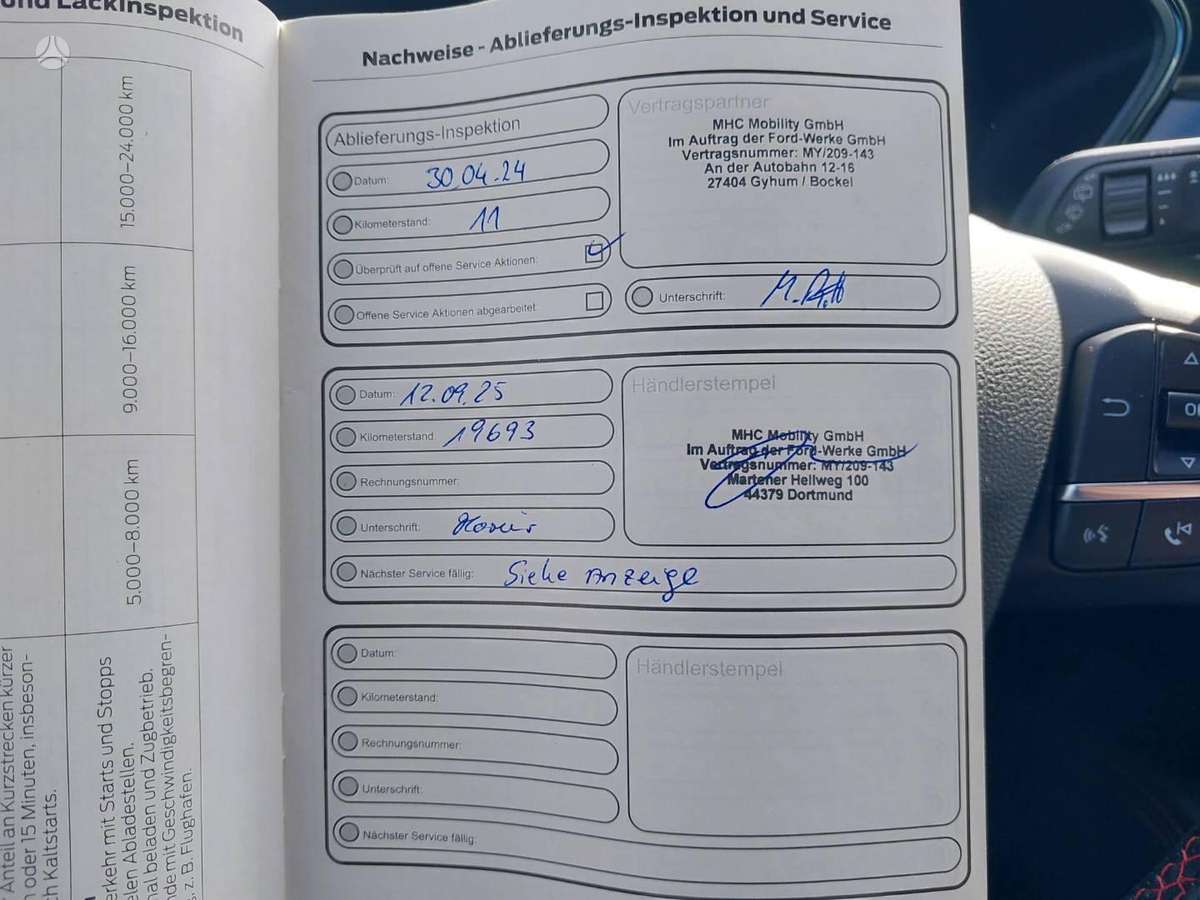 und Lackinspektion
15.000–24.000 km
9.000–16.000 km
5.000–8.000 km
Anteil an Kurzstrecken kürzer
oder 15 Minuten, insbeson-
Kaltstarts.
erkehr mit Starts und Stopps
elen Abladestellen.
nal beladen und Zugbetrieb.
nde mit Geschwindigkeitsbegren-
z. B. Flughafen.
Nachweise - Ablieferungs-Inspektion und Service
Ablieferungs-Inspektion
Datum: 30.04.24
Kilometerstand: 11
Überprüft auf offene Service Aktionen:
Offene Service Aktionen abgearbeitet:
Vertragspartner
MHC Mobility GmbH
Im Auftrag der Ford-Werke GmbH
Vertragsnummer: MY/209-143
An der Autobahn 12-16
27404 Gyhum / Bockel
Unterschrift:
Datum: 12.09.25
Kilometerstand: 19693
Rechnungsnummer:
Unterschrift:
Nächster Service fällig: Siehe Anzeige
Händlerstempel
MHC Mobility GmbH
Im Auftrag der Ford-Werke GmbH
Vertragsnummer: MY/209-143
Martener Hellweg 100
44379 Dortmund
Datum:
Kilometerstand:
Rechnungsnummer:
Unterschrift:
Nächster Service fällig:
Händlerstempel